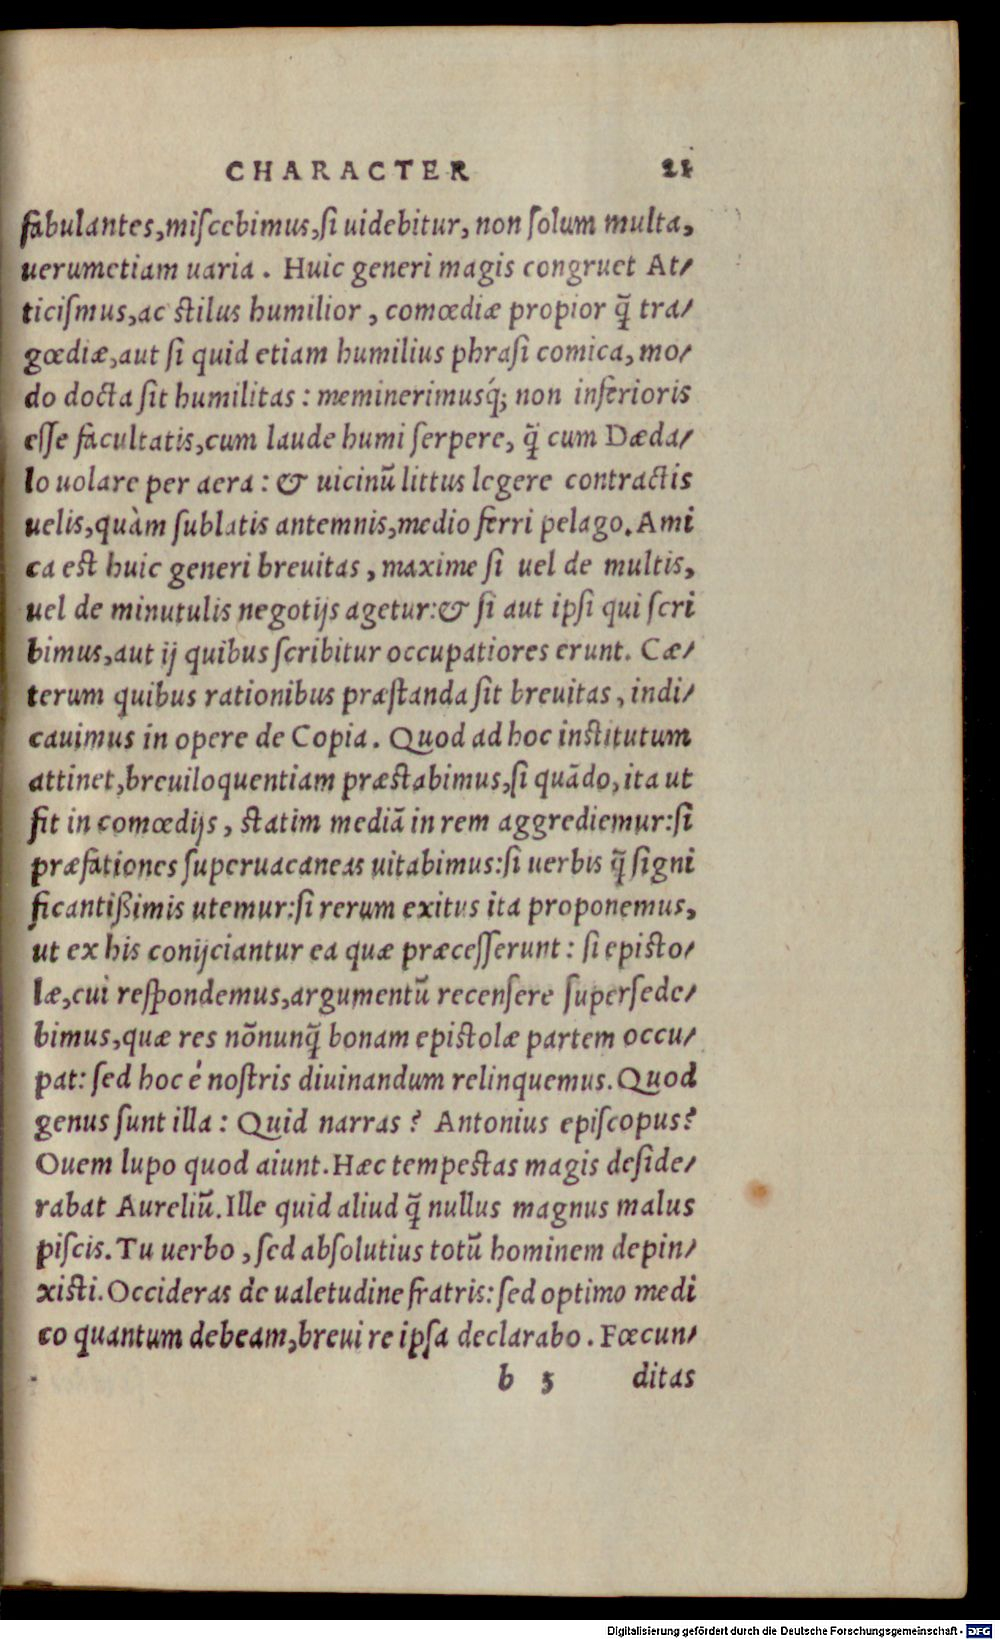 CHARACTER 21
fabulantes,miſcebimus,ſi uidebitur, non ſolum multa,
uerumetiam uaria . Huic generi magis congruet At/
ticiſmus,ac ſtilus humilior , comœdiæ propior q̃ tra/
gœdiæ,aut ſi quid etiam humilius phraſi comica, mo/
do docta ſit humilitas : meminerimusq́; non inferioris
eſſe facultatis,cum laude humi ſerpere, q̃ cum Dæda/
lo uolare per aera : & uicinũ littus legere contractis
uelis,quàm ſublatis antemnis,medio ferri pelago. Ami
ca eſt huic generi breuitas , maxime ſi uel de multis,
uel de minutulis negotijs agetur:& ſi aut ipſi qui ſcri
bimus,aut ij quibus ſcribitur occupatiores erunt. Cæ/
terum quibus rationibus præſtanda ſit breuitas , indi/
cauimus in opere de Copia . Quod ad hoc inſtitutum
attinet,breuiloquentiam præſtabimus,ſi quãdo, ita ut
fit in comœdijs , ſtatim mediã in rem aggrediemur:ſi
præfationes ſuperuacaneas uitabimus:ſi uerbis q̃ ſigni
ficantißimis utemur:ſi rerum exitus ita proponemus,
ut ex his conijciantur ea quæ præceſſerunt : ſi epiſto/
læ,cui reſpondemus,argumentũ recenſere ſuperſede/
bimus,quæ res nõnunq̃ bonam epiſtolæ partem occu/
pat: ſed hoc é noſtris diuinandum relinquemus. Quod
genus ſunt illa : Quid narras ? Antonius epiſcopus?
Ouem lupo quod aiunt. Hæc tempeſtas magis deſide/
rabat Aureliũ. Ille quid aliud q̃ nullus magnus malus
piſcis. Tu uerbo , ſed abſolutius totũ hominem depin/
xiſti. Occideras de ualetudine fratris: ſed optimo medi
co quantum debeam,breui re ipſa declarabo . Fœcun/
b 3 ditas
Digitalisierung gefördert durch die Deutsche Forschungsgemeinschaft - DFG